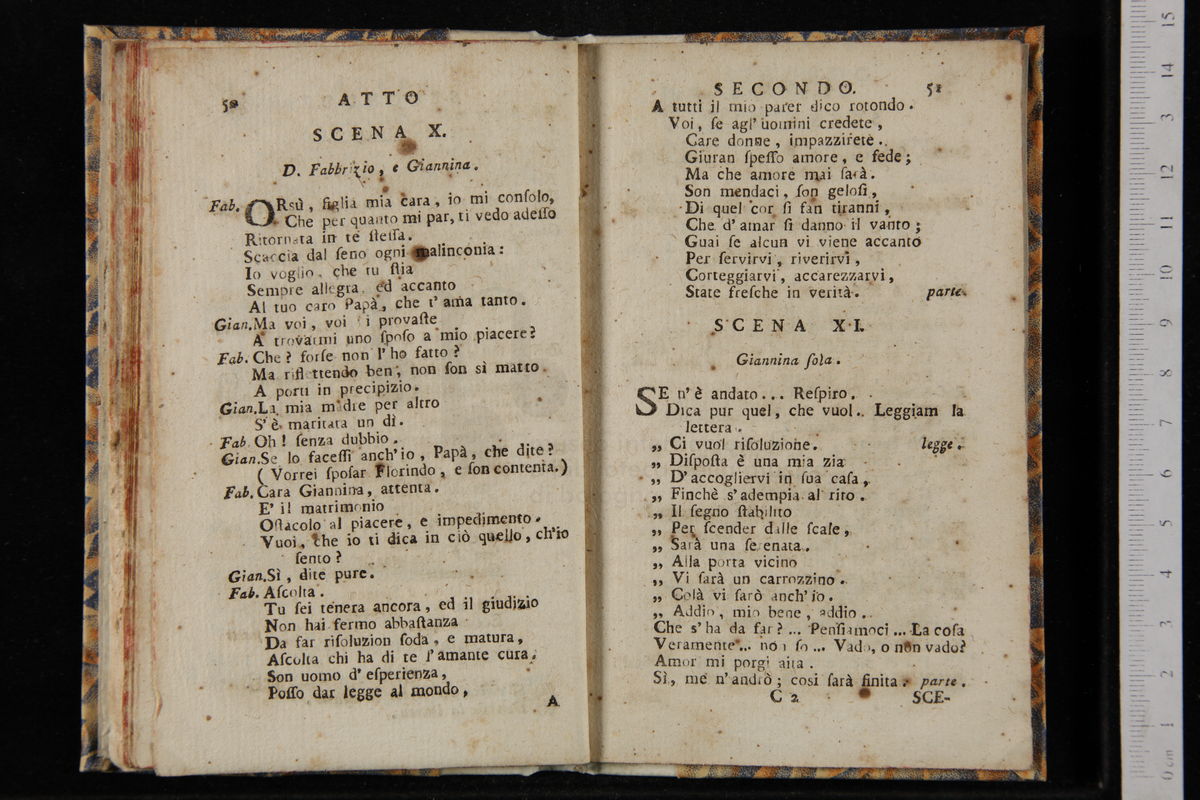 50 ATTO
SCENA X.
D. Fabbrizio, e Giannina.
Fab. ORsù, figlia mia cara, io mi conſolo,
Che per quanto mi par, ti vedo adeſſo
Ritornata in te ſteſſa.
Scaccia dal ſeno ogni malinconia:
Io voglio, che tu ſtia
Sempre allegra, ed accanto
Al tuo caro Papà, che t'ama tanto.
Gian. Ma voi, voi i provaſte
A trovarmi uno ſpoſo a mio piacere?
Fab. Che? forſe non l'ho fatto?
Ma riflettendo ben, non ſon sì matto
A porti in precipizio.
Gian. La mia madre per altro
S'è maritata un dì.
Fab. Oh! ſenza dubbio.
Gian. Se lo faceſſi anch'io, Papà, che dite?
(Vorrei ſpoſar Florindo, e ſon contenta.)
Fab. Cara Giannina, attenta.
E' il matrimonio
Oſtacolo al piacere, e impedimento.
Vuoi, che io ti dica in ciò quello, ch'io
ſento?
Gian. Sì, dite pure.
Fab. Aſcolta.
Tu ſei tenera ancora, ed il giudizio
Non hai fermo abbaſtanza
Da far riſoluzion ſoda, e matura,
Aſcolta chi ha di te l'amante cura.
Son uomo d'eſperienza,
Poſſo dar legge al mondo,
A
SECONDO. 51
A tutti il mio parer dico rotondo.
Voi, ſe agl'uomini credete,
Care donne, impazzirete.
Giuran ſpeſſo amore, e fede;
Ma che amore mai ſarà.
Son mendaci, ſon geloſi,
Di quel cor ſi fan tiranni,
Che d'amar ſi danno il vanto;
Guai ſe alcun vi viene accanto
Per ſervirvi, riverirvi,
Corteggiarvi, accarezzarvi,
State freſche in verità. parte.
SCENA XI.
Giannina ſola.
SE n'è andato... Reſpiro.
Dica pur quel, che vuol. Leggiam la
lettera.
„ Ci vuol riſoluzione. legge.
„ Diſpoſta è una mia zia
„ D'accogliervi in ſua caſa,
„ Finchè s'adempia al rito.
„ Il ſegno ſtabilito
„ Per ſcender dalle ſcale,
„ Sarà una ſerenata.
„ Alla porta vicino
„ Vi ſarà un carrozzino.
„ Colà vi ſarò anch'io.
„ Addio, mio bene, addio.
Che s'ha da far?... Penſiamoci... La coſa
Veramente... non ſo... Vado, o non vado?
Amor mi porgi aita.
Sì, me n'andrò; così ſarà finita. parte.
C 2 SCE-
0 cm 1 2 3 4 5 6 7 8 9 10 11 12 13 14 15